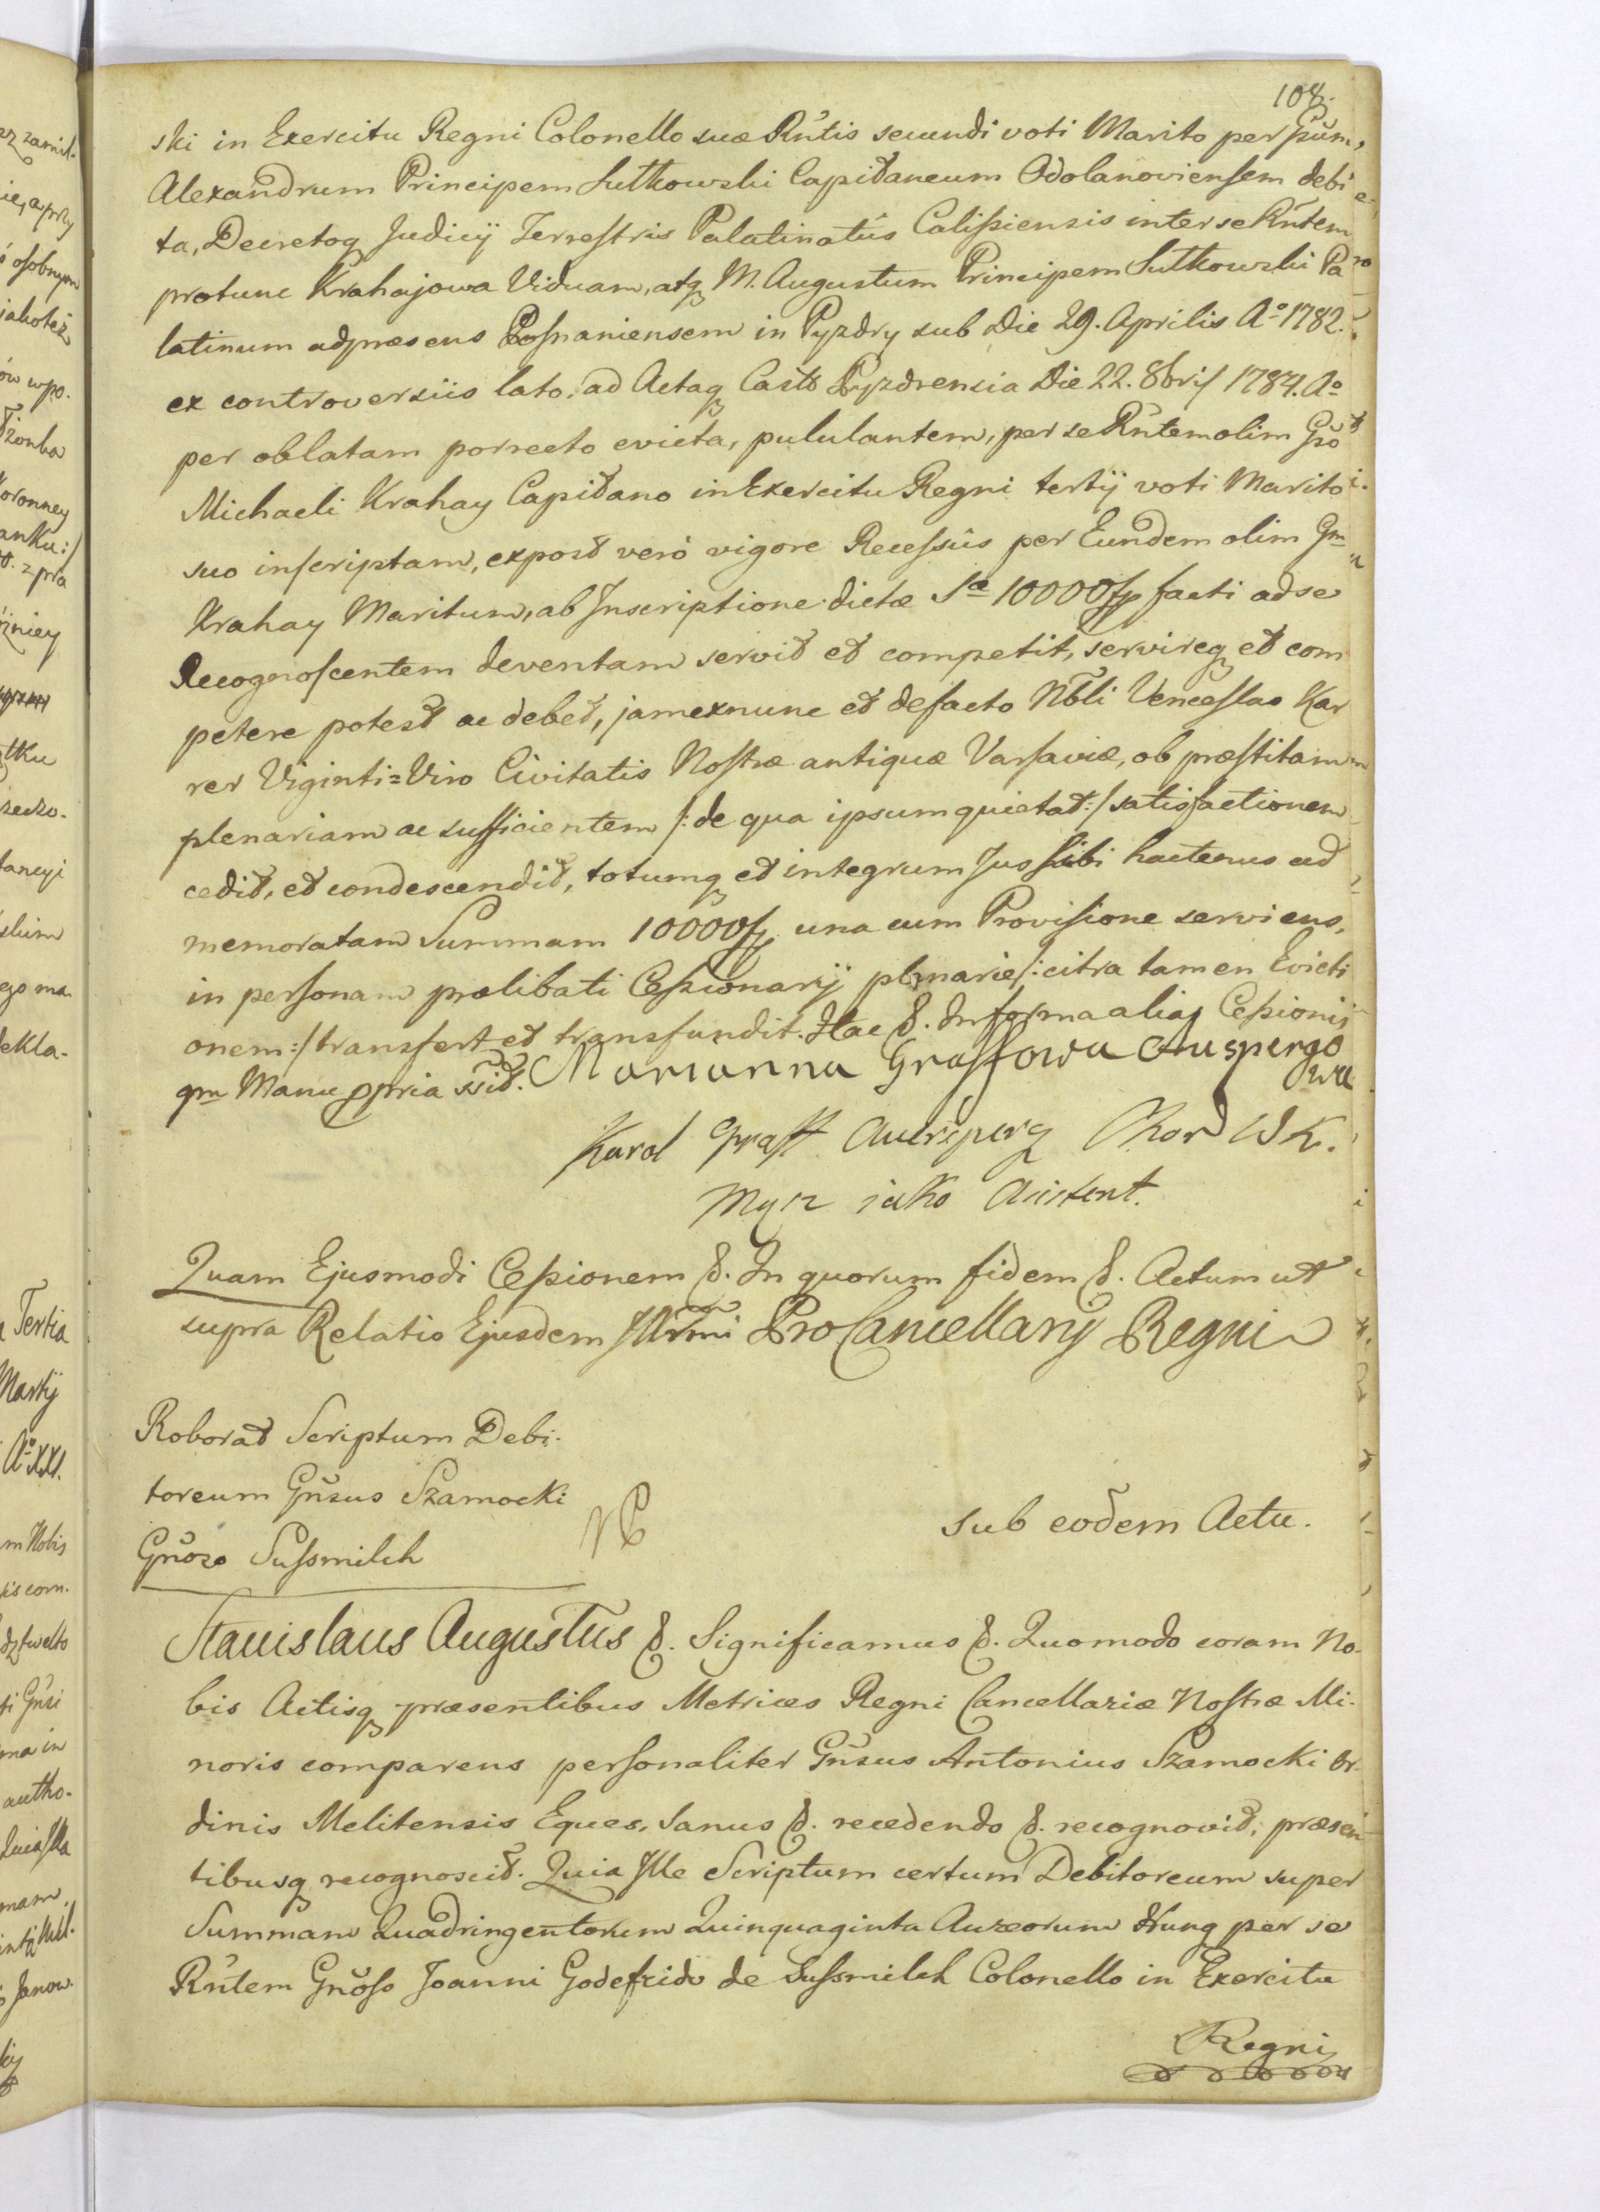 108.
ski in Exercitu Regni Colonello suæ Rñtis secundi voti Marito per
Alexandrum Principem Sułkowski Capitaneum Odolanoviensem debi
ta, Decretoq Judicÿ Terrestris Palatinatûs Calisiensis inter se Rñtem
protunc Krahajowa Viduam, atq M. Augustum Principem Sułkowski Pa
latinum adpræsens Posnaniensem in Pyzdry sub Die 29. Aprilis Aº 1782.
ex controversiis lato, ad Actaq Castr Pyzdrensia Die 22. 8bris 1784. Aº
per oblatam porrecto evicta, pululantem, per se Rñtem olim Gso
Michaeli Krahay Capitano in Exercitu Regni tertÿ voti Marito
suo inscriptam, expost verò vigore Recessûs per Eundem olim Gm
Krahay Maritum, ab Inscriptione dictæ Sæ 10000 fp facti ad se
Recognoscentem deventam servit et competit, servireq et com
petere potest ac debet, jam exnunc et defacto Nbli Venceslao Kar
rer Viginti=Viro Civitatis Nostræ antiquæ Varsaviæ, ob præstitam
plenariam ac sufficientem /: de qua ipsum quietat :/ satisfactionem
cedit, et condescendit, totumq et integrum Jus sibi hactenus ad
memoratam Summam 10000 fp. una cum Provisione serviens,
in personam prælibati Cessionarÿ plenarie /: citra tamen Evicti
onem :/ transfert et transfundit. Hac &. In forma alias Cessionis
qm Manu ppria ssit. Marianna Graffowa Auspergo
wa
Karol Graff Auersperg Chor W K.
Mąz jako Asistent.
Quam Ejusmodi Cessionem &. In quorum fidem &. Actum ut
supra Relatio Ejusdem Illrmi ProCancellarÿ Regni
Roborat Scriptum Debi-
toreum Gñsus Szamocki
Gñoso Sussmilch
sub eodem Actu.
Stanislaus Augustus &. Significamus &. Quomodo coram No-
bis Actisq præsentibus Metrices Regni Cancellariæ Nostræ Mi-
noris comparens personaliter Gñsus Antonius Szamocki Or-
dinis Melitensis Eques, Sanus &. recedendo &. recognovit, præsen
tibusq recognoscit. Quia Ille Scriptum certum Debitoreum super
Summam Quadringentorum Quinquaginta Aureorum Hung per se
Rñtem Gñoso Joanni Godefrido de Sussmilch Colonello in Exercitu
Regni